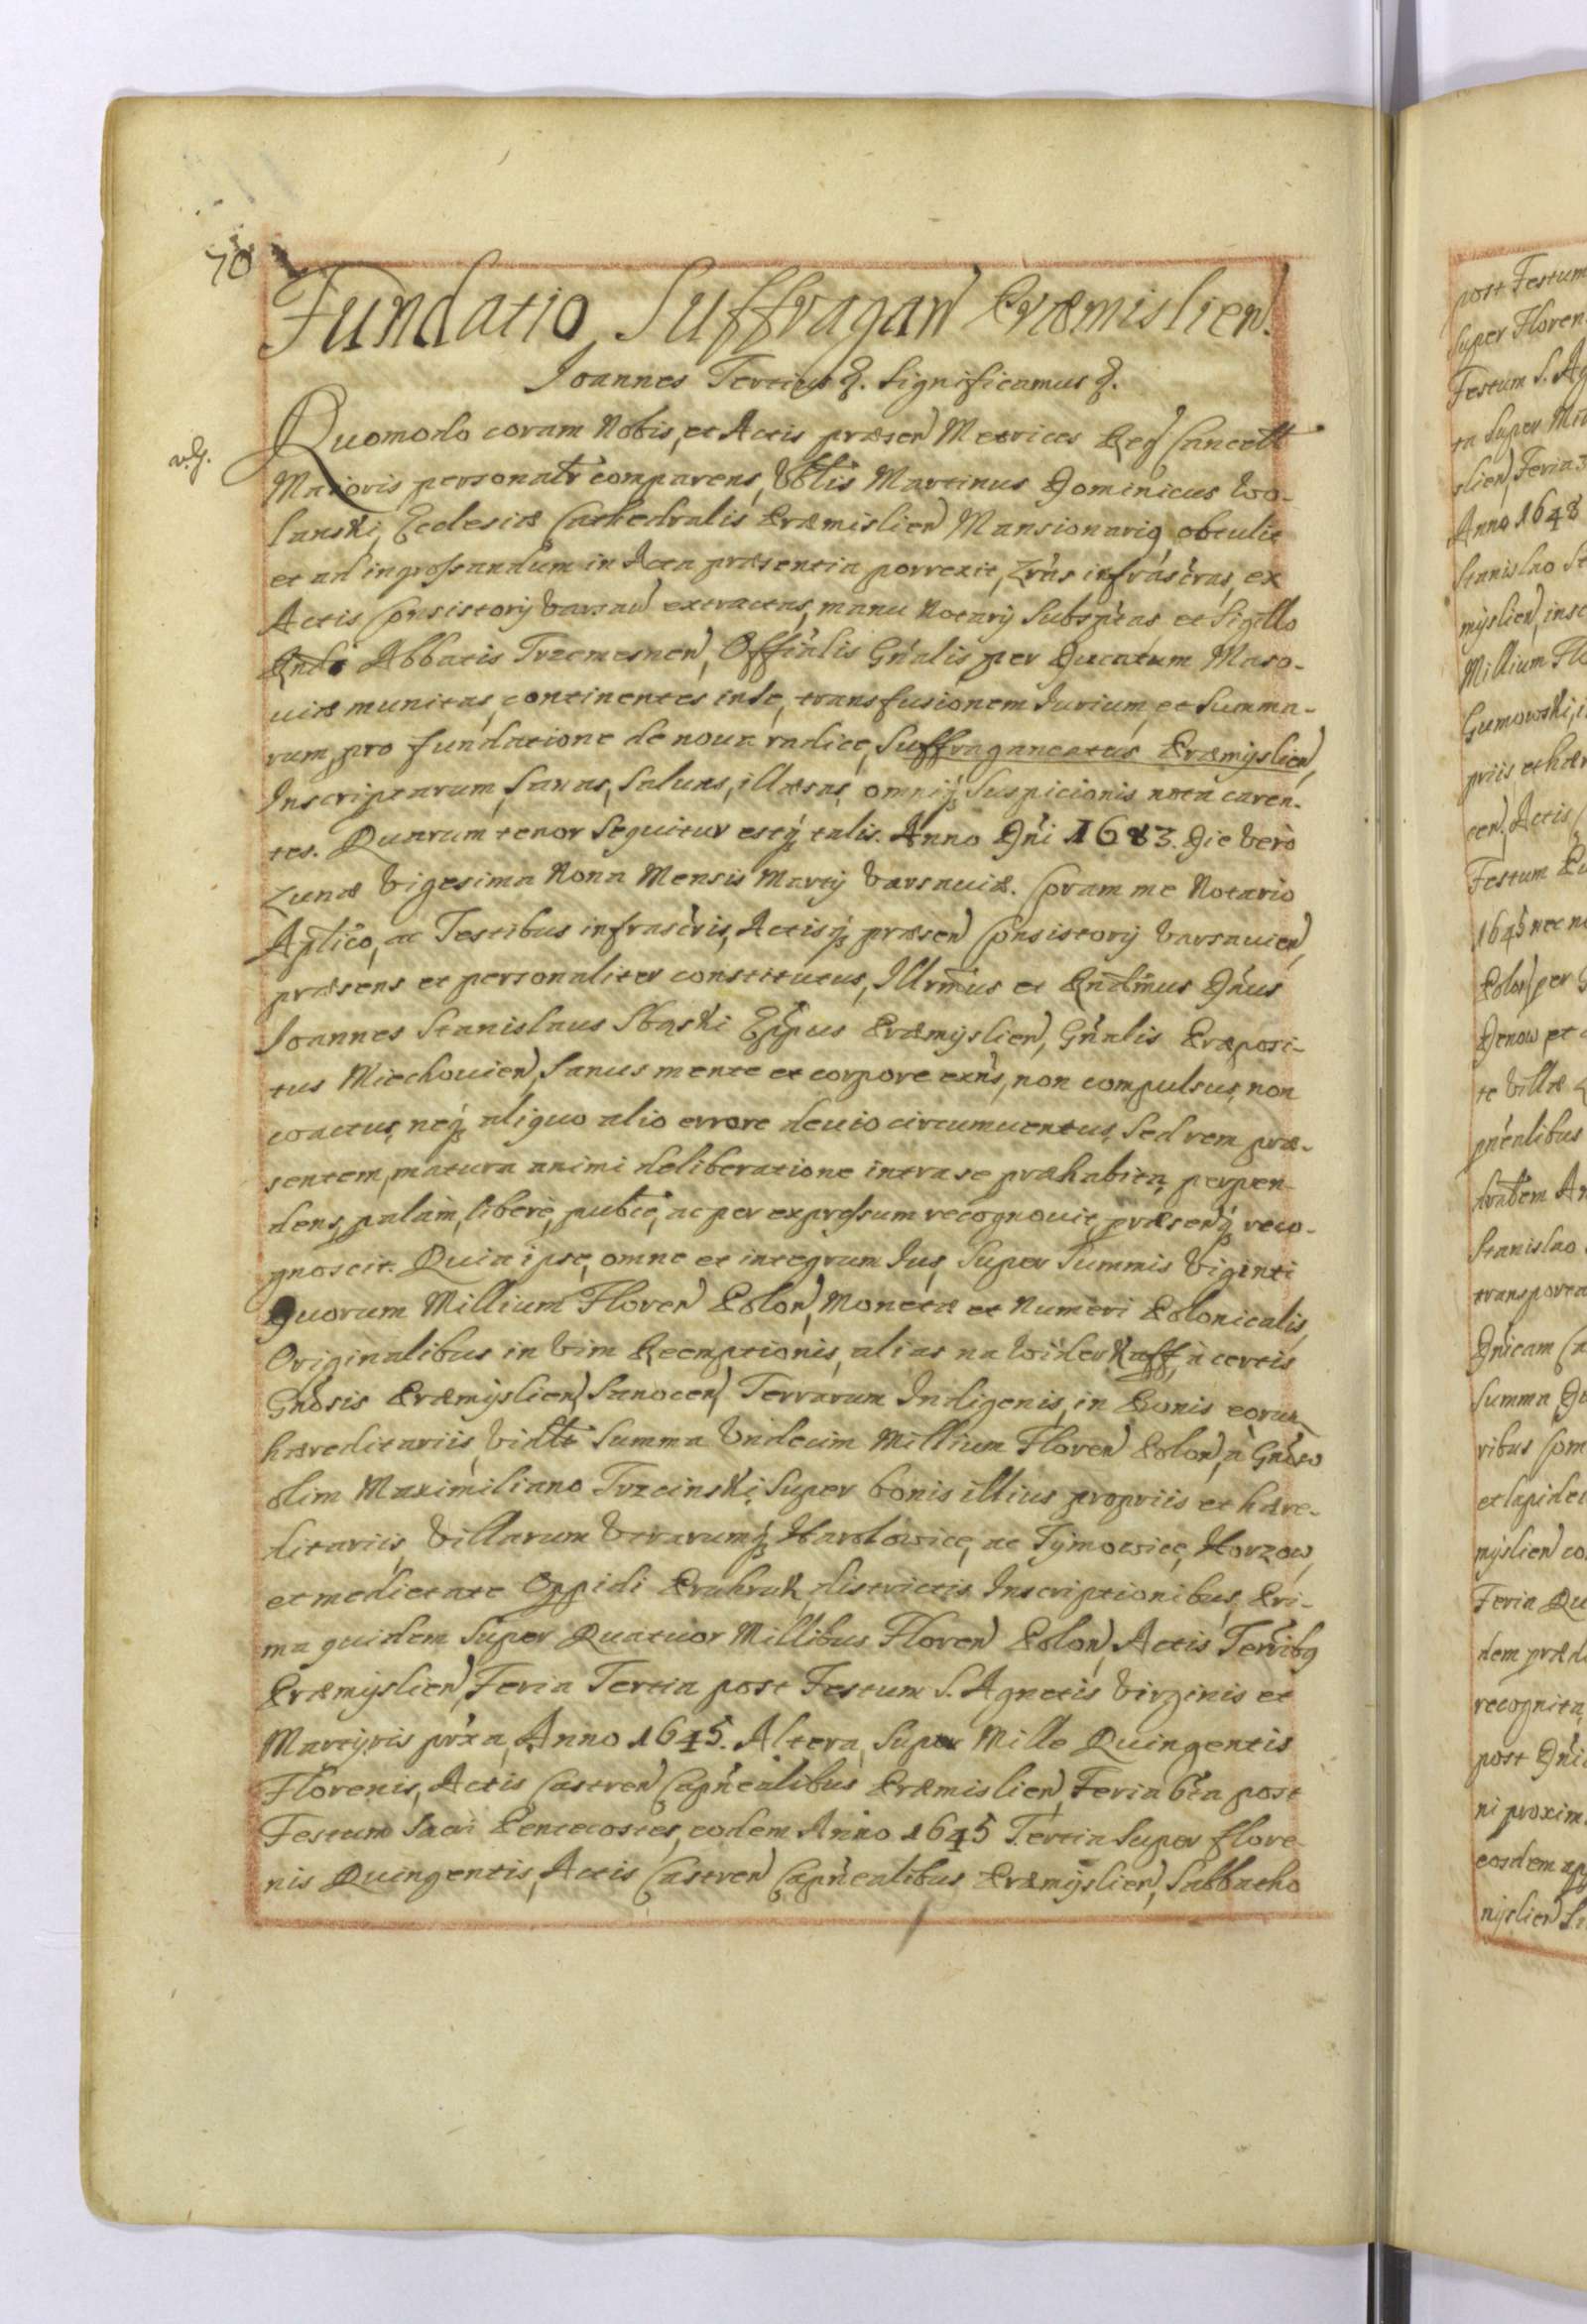 70
Fundatio Suffragan Præmislien.
Joannes Tertius &. Significamus &.
v.g.
Quomodo coram Nobis, et Actis præsen Metrices Reg Cancell
Maioris personalr comparens, Vblis Martinus Dominicus Wo-
lanski, Ecclesiæ Cathedralis Præmislien Mansionariq obtulit
et ad ingrossandum in Acta præsentia porrexit, Lras infrasctas, ex
Actis Consistorij Varsav extractas, manu Notarij Subsptas et Sigillo
Rndi Abbatis Trzemesnen, Offialis Gnalis per Ducatum Maso-
uiæ munitas, continentes in se, transfusionem Jurium, et Summa-
rum, pro fundatione de noua radice, Suffraganeatus Præmyslien,
Inscriptarum, Sanas, Saluas, illæsas, omniq Suspicionis nota caren-
tes. Quarum tenor Sequitur estq talis. Anno Dni 1683. Die verò
Lunæ Vigesima Nona Mensis Martij Varsauiæ. Coram me Notario
Aplico, ac Testibus infrasctis, Actisq præsen Consistorij Varsauien,
præsens et personaliter constitutus, Illrmus et Rndmus Dnus
Joannes Stanislaus Sbąski Epus Præmyslien, Gnalis Præposi-
tus Miechouien, Sanus mente et corpore exns, non compulsus, non
coactus, neq aliquo alio errore deuio circumuentus, Sed rem præ-
sentem, matura animi deliberatione intra se præhabita, perpen-
dens, palàm, liberè, publcè, ac per expressum recognouit, præsenq reco-
gnoscit. Quia ipse, omne et integrum Jus, Super Summis Viginti
Duorum Millium Floren Polon, Monetæ et Numeri Polonicalis,
Originalibus in Vim Reemptionis, alias na Widerkaff, à certis
Gnosis Præmyslien, Sanocen, Terrarum Indigenis, in Bonis eorum
hæreditariis, Vidlt Summa Vndecim Millium Floren Polon, à Gnoso
olim Maximiliano Trzcinski, Super bonis illius propriis et hære-
ditariis, Villarum Vtrarumq Harolowice, ac Tymowice, Horzow,
et medietate Oppidi Pruhnik, districtis Inscriptionibus, Pri-
ma quidem Super Quatuor Millibus Floren Polon, Actis Terribq
Præmyslien, Feria Tertia post Festum S. Agnetis Virginis et
Martyris prxa, Anno 1645. Altera, Super Mille Quingentis
Florenis, Actis Castren Capnealibus Præmislien, Feria 6ta post
Festum Sacri Pentecostes, eodem Anno 1645 Tertia Super flore-
nis Quingentis, Actis Castren Capnealibus Præmyslien, Sabbatho
post Festum
Super Floren
Festum S. Ag
ta Super Mil
slien, Feria 3
Anno 1648
Stanislao St
myslien, insc
Millium Flo
Gumowski, i
priis et hær
cen, Actis
Festum
1645 nec n
Polon per
Denow et
te Villæ
pnealibus
Stanislao
transporta
Summa
ribus Com
et lapide
myslien co
Feria Qu
dem præd
recognita,
post Dni
ni proxim
eosdem
myslien